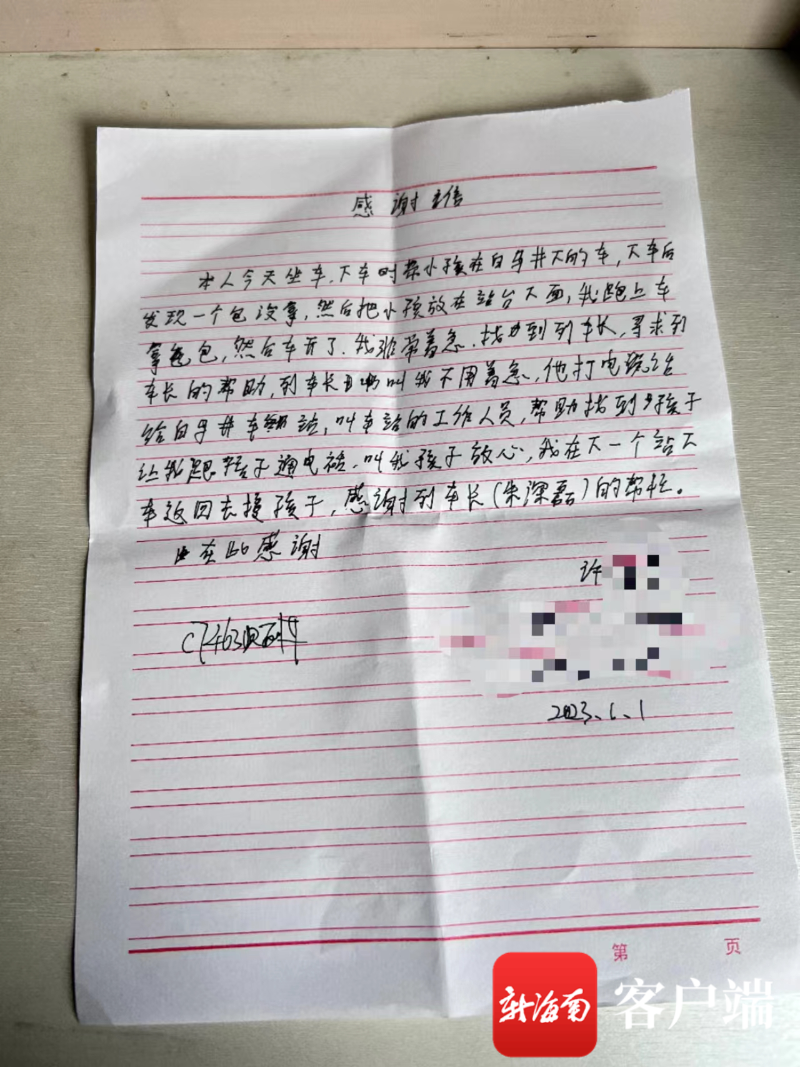 感谢信
本人今天坐车,下车时带小孩在白马井下的车,下车后
发现一个包没拿,然后把小孩放在站台下面,我跑上车
拿包,然后车开了.我非常着急.找到列车长,寻求列
车长的帮助,列车长叫我不用着急,他打电话给
给白马井车站,叫车站的工作人员,帮助找到孩子
让我跟孩子通电话.叫我孩子放心,我在下一个站下
车返回去接孩子,感谢列车长(朱深磊)的帮忙。
在此感谢
许
C7463
2023.1.1
第 页
新海南 客户端